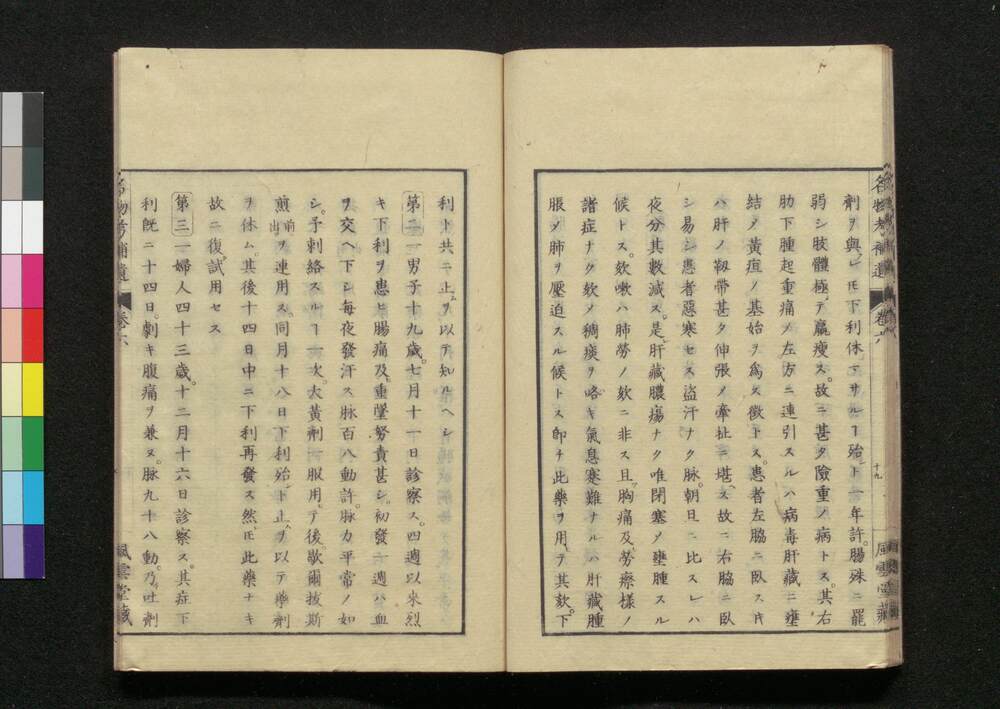 劑ヲ與レ𪜈下利休マサルヿ殆ント一年許。腸殊ニ罷
弱シ肢體極テ羸瘦ス。故ニ甚タ險重ノ病トス。其右
肋下腫起重痛メ左方ニ連引スルハ病毒肝藏ニ壅
結メ黃疸ノ基始ヲ爲ス徵トス。患者左脇ニ臥ス𪜈
ハ肝ノ靱帶甚タ伸張メ牽扯ニ堪ヘス故ニ右脇ニ臥
シ易シ患者惡寒セス盜汗ナク脉。朝旦ニ比スレハ
夜分其數減ス。是レ肝藏膿瘍ナク唯閉塞メ壅腫スル
候トス。欬嗽ハ肺勞ノ欬ニ非ス且ツ胸痛及ヒ勞瘵樣ノ
諸症ナク欬メ稠痰ヲ咯キ氣息塞難ナルハ肝藏腫
脹メ肺ヲ壓迫スル候トス卽チ此藥ヲ用テ其欬。下
利ト共ニ止ムヲ以テ知ルヘシ
第二 一男子十九歲。七月十一日診察ス。四週以來烈
キ下利ヲ患ヒ腸痛及ヒ重墜努責甚シ。初發一週ハ血
ヲ交ヘ下シ每夜發汗ス脉百八動許。脉力平常ノ如
シ。予刺絡スルヿ一次。大黃劑一服用テ後。歇爾拔斯
煎前出ヲ連用ス。同月十八日下利殆ント止ムヲ以テ藥劑
ヲ休ム。其後十四日中ニ下利再發ス然レ𪜈此藥ナキ
故ニ復タ試用セス
第三 一婦人四十三歲。十二月十六日診察ス。其症下
利旣ニ十四日。劇キ腹痛ヲ兼ヌ。脉九十八動。乃チ吐劑
名物考補遺 卷六 十九 風雲堂藏
名物考補遺 卷六 風雲堂藏